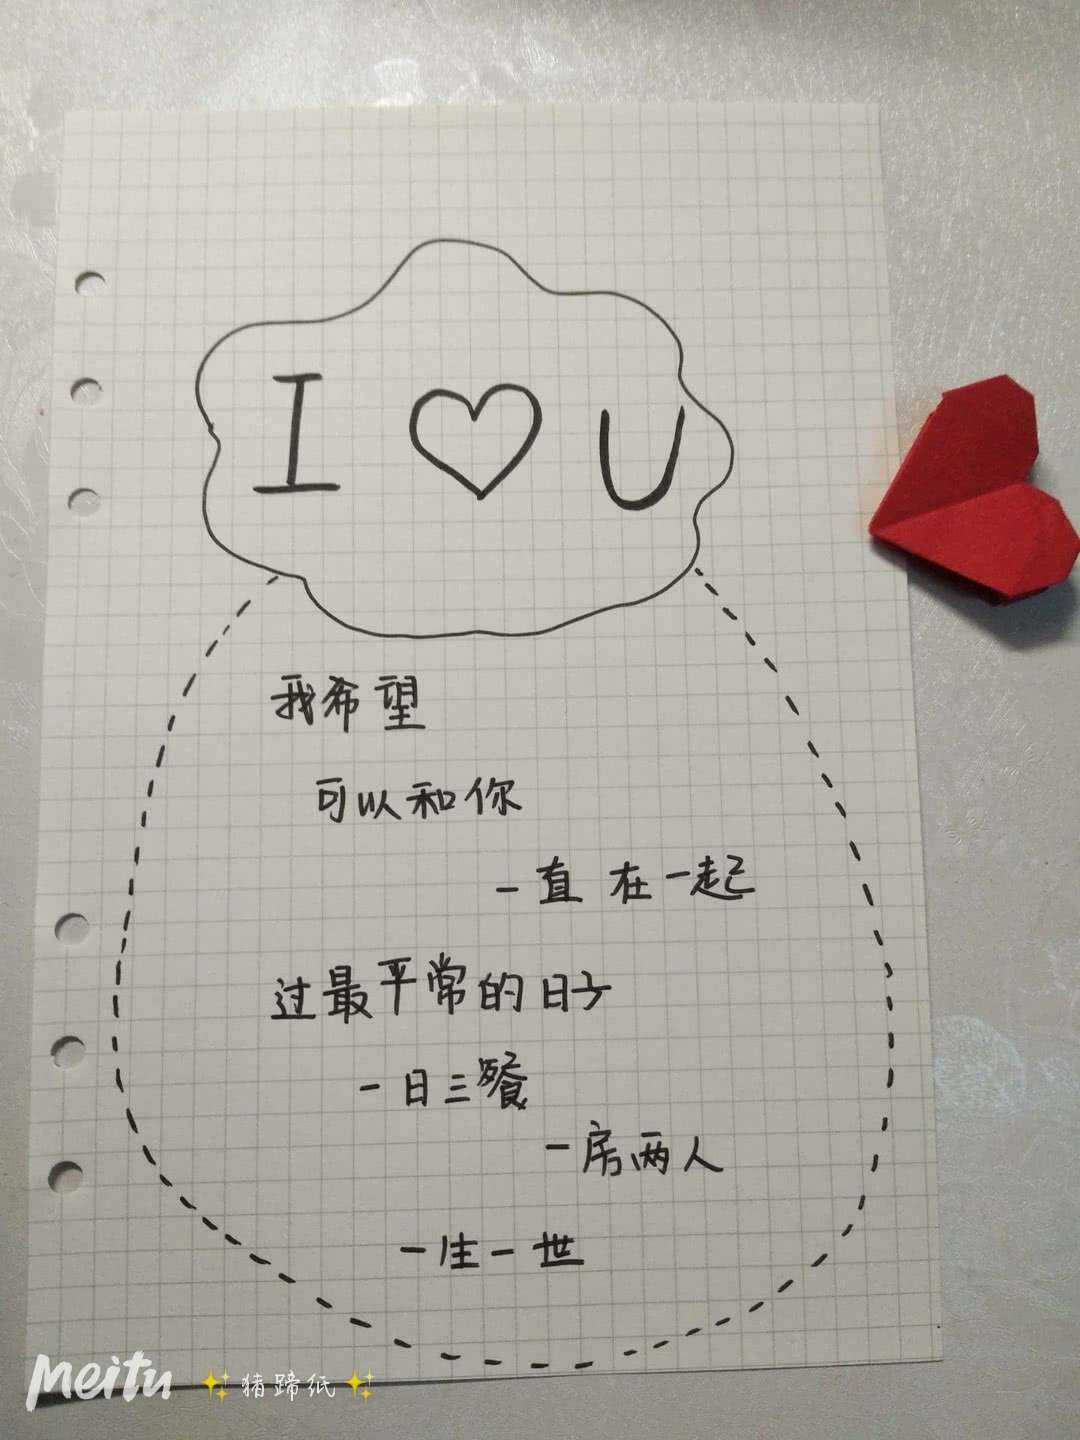 I ♡ U
我希望
可以和你
一直在一起
过最平常的日子
一日三餐
一房两人
一生一世
meitu ✨猪蹄纸✨